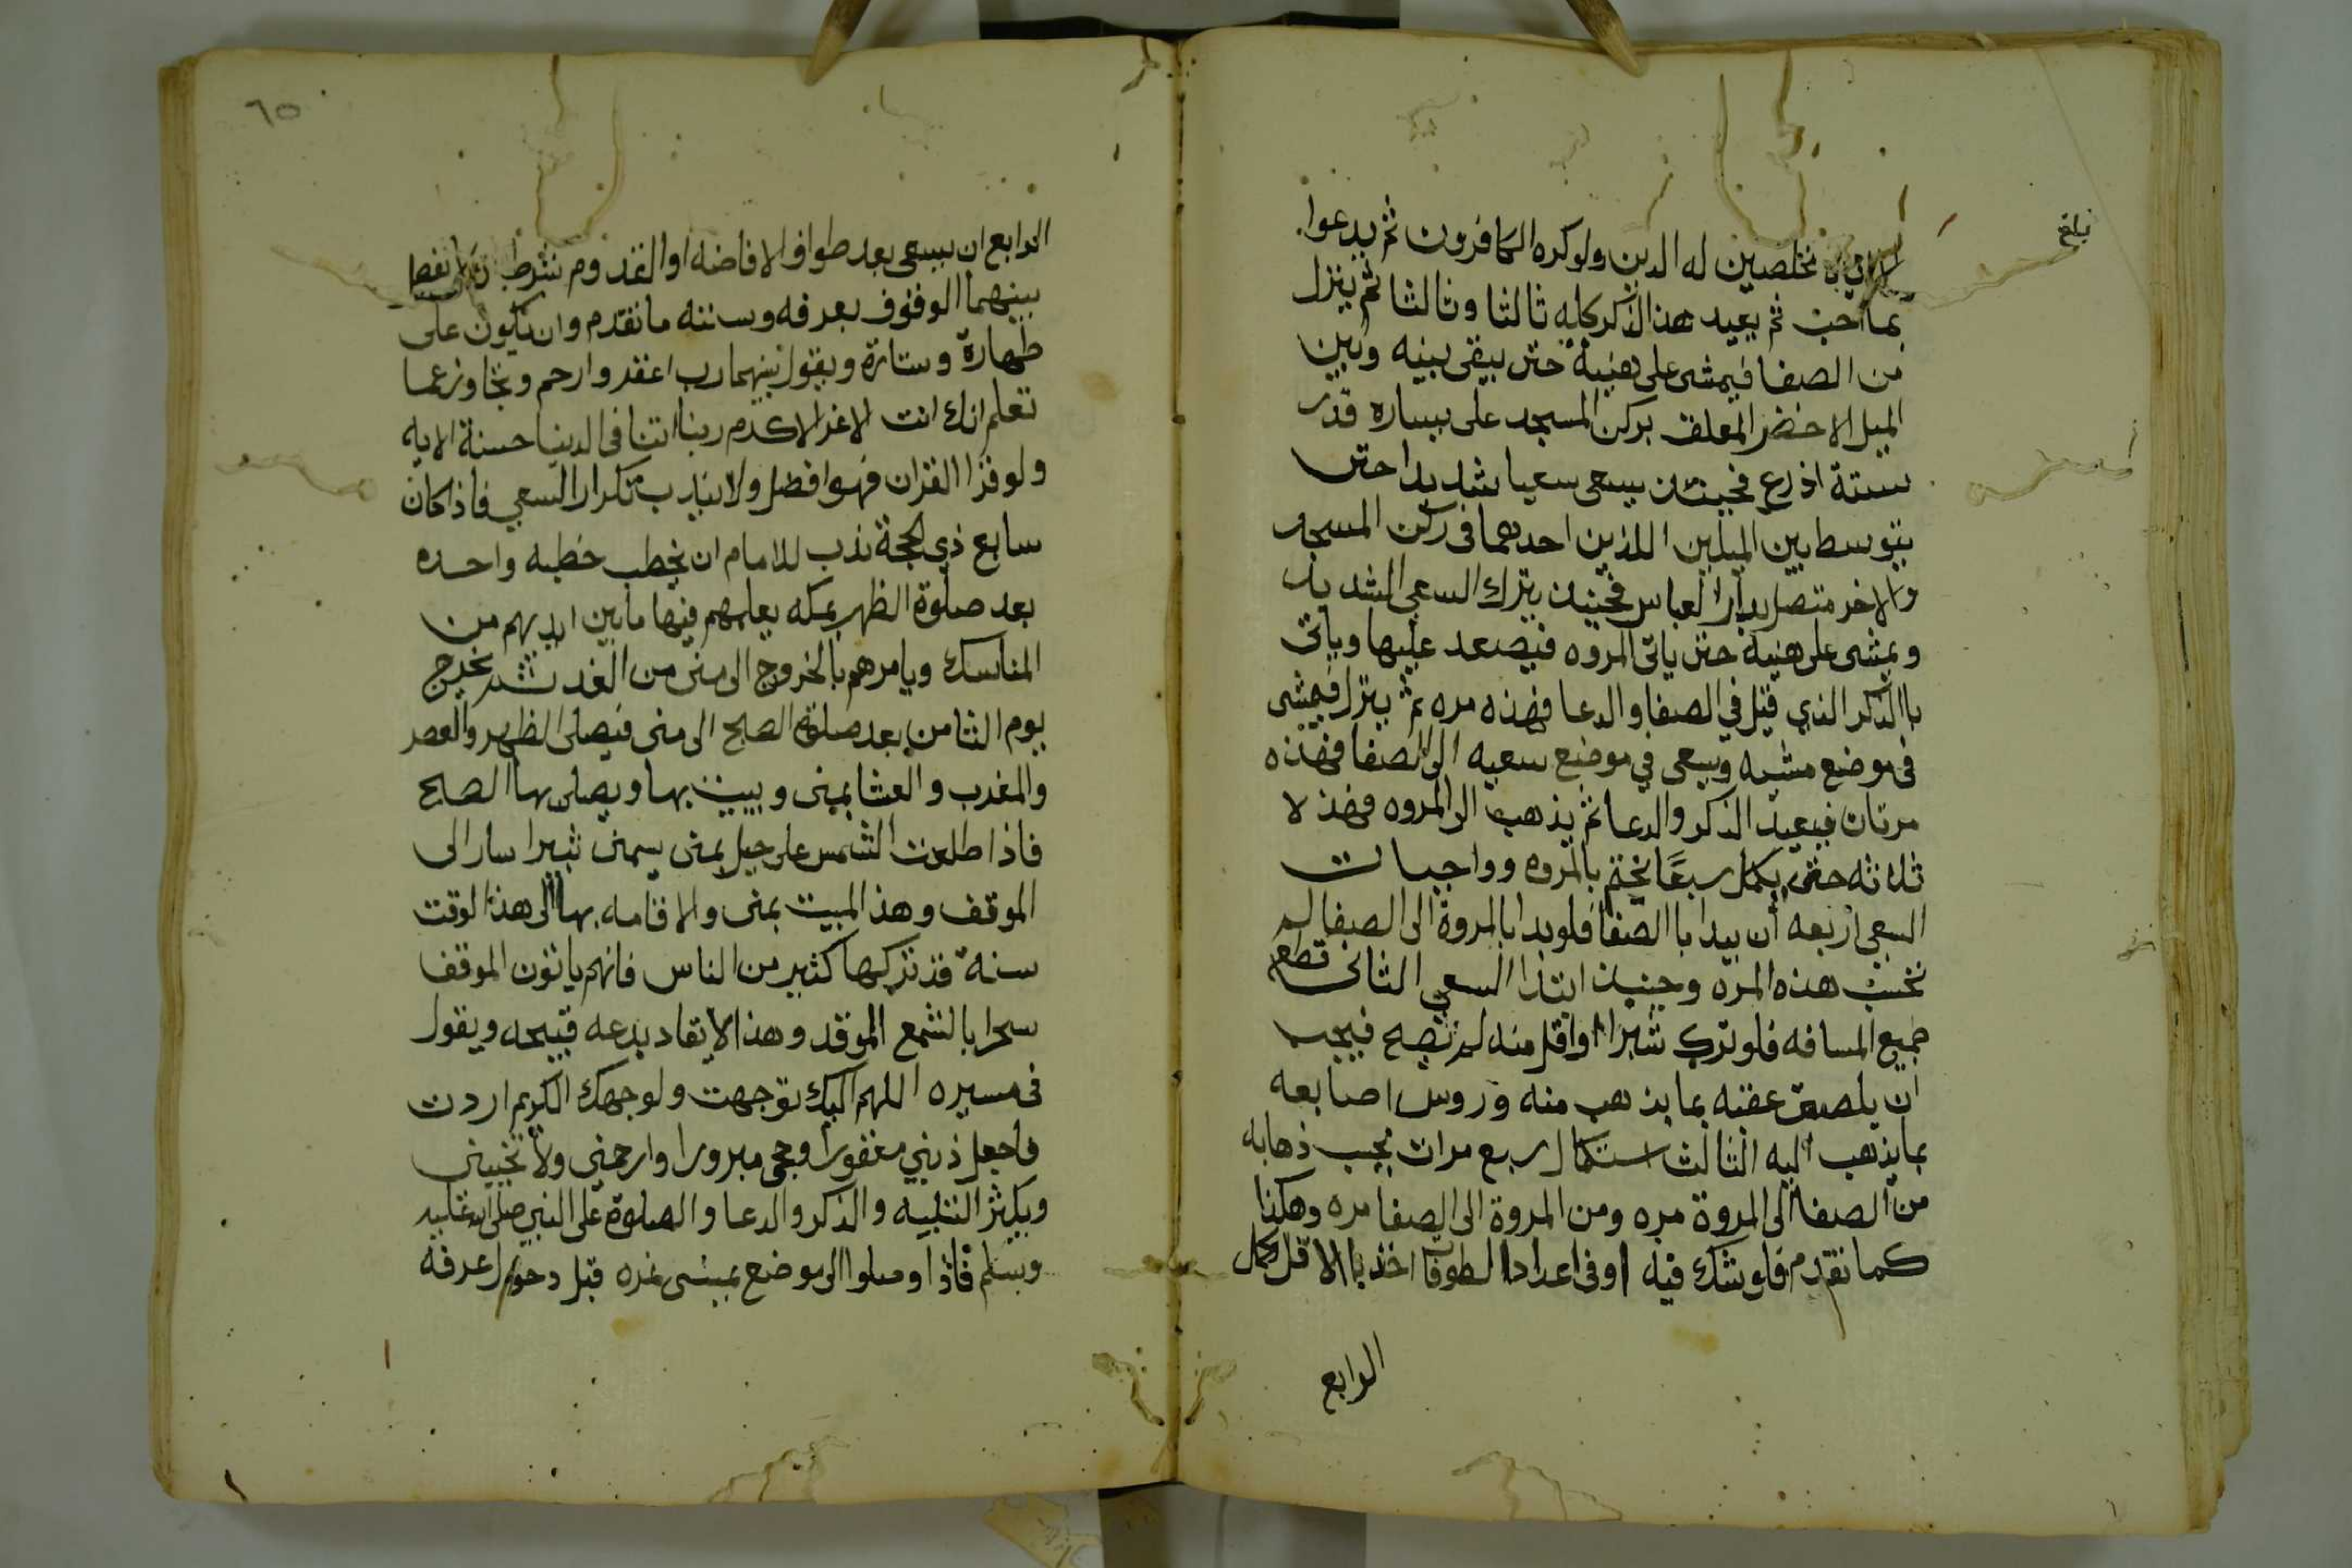 بلغ
الا اياه مخلصين له الدين ولوكره الكافرون ثم يدعوا
بما احب ثم يعيد هذا الذكر كله ثانيا وثالثا ثم ينزل
من الصفا فيمشى على هنية حتى يبقى بينه وبين
الميل الاخضر المعلق بركن المسجد على يساره قدر
ستة اذرع فحينئذ يسعى سعيا شديدا حتى
يتوسط بين الميلين اللذين احدهما فى ركن المسجد
والاخر متصل بدار العباس فحينئذ يترك السعى الشديد
ويمشى على هنية حتى ياتى المروه فيصعد عليها وياتى
باالذكر الذي قيل في الصفا والدعا فهذه مره ثم ينزل فيمشى
فى موضع مشيه ويسعى في موضع سعيه الى الصفا فهذه
مرتان فيعيد الذكر والدعا ثم يذهب الى المروه فهذ لا
ثلاثه حتى يكمل سبعًا يختم بالمروه وواجبات
السعى اربعه أن يبدا باالصفا فلوبدا بالمروة الى الصفا لم
تحسب هذه المره وحينئذ ابتدا السعي الثانى قطع
جميع المسافه فلو ترك شبرا او اقل منه لم تصح فيجب
ان يلصق عقبه بما يذهب منه وروس اصابعه
بما يذهب اليه الثالث استكمال سبع مرات يجب ذهابه
من الصفا الى المروة مره ومن المروة الى الصفا مره وهكذا
كما تقدم فلو شك فيه او فى اعداد الطوفات اخذ باالاقل وكمل
الرابع
٦٥
الرابع ان يسعى بعد طواف الافاضه او القدوم بشرط ان لا يفصل
بينهما الوقوف بعرفه وسننه ماتقدم وان يكون على
طهارة وستارة ويقول بينهما رب اغفر وارحم وتجاوز عما
تعلم انك انت الاعز الاكرم ربنا اتنا فى الدنيا حسنة الايه
ولو قرا القران فهو افضل ولا يندب تكرار السعي فاذا كان
سابع ذي الحجة ندب للامام ان يخطب خطبه واحده
بعد صلوة الظهر بمكه يعلمهم فيها مابين ايديهم من
المناسك ويامرهم بالخروج الى منى من الغد ثم يخرج
يوم الثامن بعد صلوة الصبح الى منى فيصلى الظهر والعصر
والمغرب والعشا بمنى ويبيت بها ويصلى بها الصبح
فاذا طلعت الشمس على جبل بمنى يسمى ثبيرا سار الى
الموقف وهذ المبيت بمنى والاقامه بها الى هذ الوقت
سنه قد تركها كثير من الناس فانهم ياتون الموقف
سحرا بالشمع الموقد وهذ الايقاد بدعه قبيحه ويقول
فى مسيره اللهم اليك توجهت ولوجهك الكريم اردت
فاجعل ذنبي مغفورا وحجى مبرورا وارحمنى ولا تخيبنى
ويكثر التلبيه والذكر والدعا والصلوة على النبي صلى الله عليه
وسلم فاذا وصلوا الى موضع يسمى نمره قبل دخول عرفه